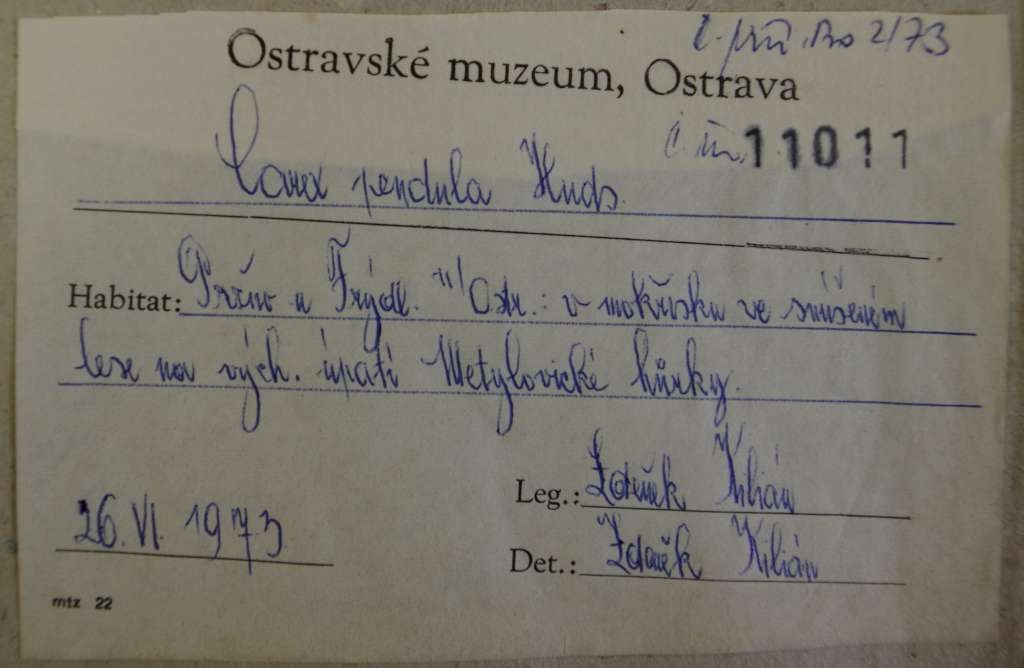 č. přír. Bo 2/73
Ostravské muzeum, Ostrava
č. inv. 11011
Carex pendula Huds.
Habitat: Pržno u Frýdl. n/Ostr.: v mokřisku ve smíšeném
lese na vých. úpatí Metylovické hůrky.
Leg.: Zdeněk Kilián
26. VI. 1973
Det.: Zdeněk Kilián
mtz 22